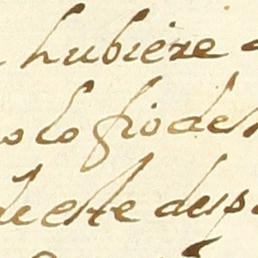 hubiere
lo fio de
de este desp